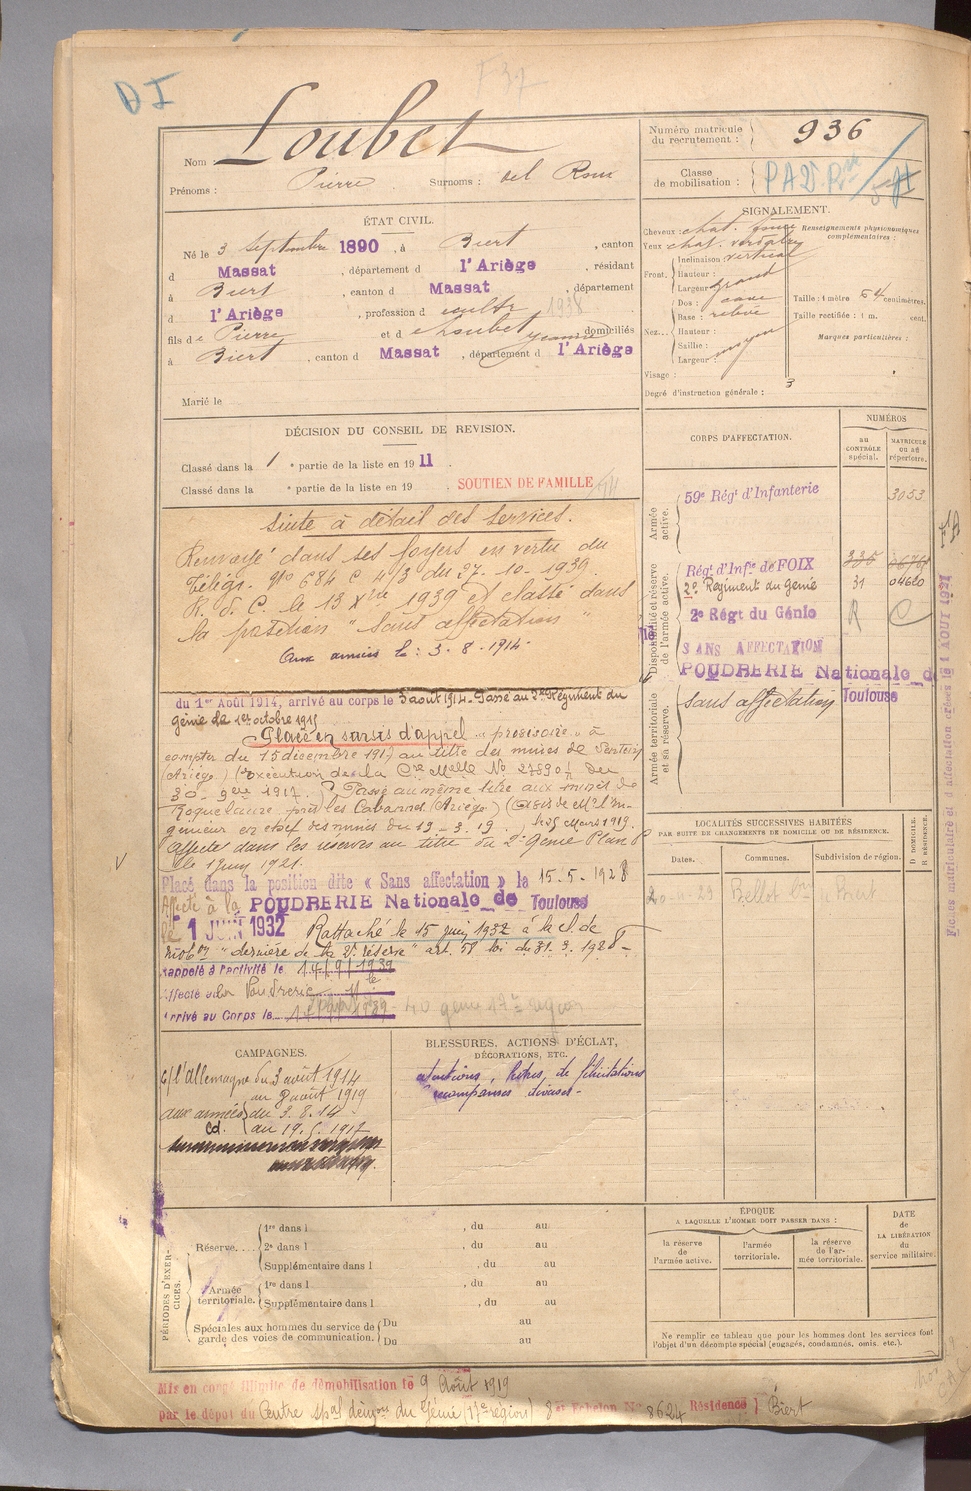 D I
F 37
Nom Loubet
Prénoms : Pierre Surnoms : del Roux
Numéro matricule du recrutement : 936
Classe de mobilisation :
ÉTAT CIVIL.
Né le 3 septembre 1890, à Biert, canton
d Massat, département d l'Ariège, résidant
à Biert, canton d Massat, département
d l'Ariège, profession d cultr 1938
fils de Pierre et de Loubet Jeanne domiciliés
à Biert, canton d Massat, département d l'Ariège
Marié le
SIGNALEMENT.
Cheveux : chat. foncé
Yeux chat. verdâtre
Front. Inclinaison vertical
Hauteur :
Largeur grand
Nez. Dos : cave
Base : relevé
Hauteur :
Saillie : moyen
Largeur :
Visage :
Renseignements physionomiques complémentaires :
Taille : 1 mètre 64 centimètres.
Taille rectifiée : 1 m. cent.
Marques particulières :
Degré d'instruction générale : 3
DÉCISION DU CONSEIL DE REVISION.
Classé dans la 1e partie de la liste en 1911.
Classé dans la e partie de la liste en 19 . SOUTIEN DE FAMILLE
suite à détail des services.
Renvoyé dans ses foyers en vertu du
Télégr. No 684 C 4/3 du 27-10-1939.
R. d. C. le 13 Xbre 1939 et classé dans
la position "Sans affectation"
Aux armées le : 3-8-1914
du 1er Août 1914, arrivé au corps le 3 août 1914. Passé au 2e Régiment du
génie le 1er octobre 1915
Placé en sursis d'appel "provisoire" à
compter du 15 décembre 1917 au titre des mines de Sentein
(Ariège) (exécution de la Cre Melle No 27890 du
30-9bre 1917. Passé au même titre aux mines de
Roquelaure, près les Cabannes (Ariège) (Avis de Mr l'In-
génieur en chef des mines du 19-3-19. 25 Mars 1919.
Affecté dans les réserves au titre du 2e Génie Plan P
le 1 Juin 1921.
Placé dans la position dite « Sans affectation » le 15-5-1928
Affecté à la POUDRERIE Nationale de Toulouse
le 1 JUIN 1932 Rattaché le 15 juin 1932 à la cl. de
mobon "dernière de la 2e réserve" art. 58 loi du 31.3.1928
Rappelé à l'activité le 14/9/1939
Affecté à la Poudrerie
Arrivé au Corps le 1939 40 génie 17e région
CORPS D'AFFECTATION.
NUMÉROS
AU CONTRÔLE spécial.
MATRICULE ou au répertoire.
Armée active.
59e Régt d'Infanterie 3053
Disponibilité et réserve de l'armée active.
Régt d'Infie de FOIX
2e Régiment du Génie 31 04660
2e Régt du Génie R C
SANS AFFECTATION
POUDRERIE Nationale de
Toulouse
Armée territoriale et sa réserve.
sans affectation
Fiches matriculaire et d'affectation créées le 1 AOUT 1931
LOCALITÉS SUCCESSIVES HABITÉES
PAR SUITE DE CHANGEMENTS DE DOMICILE OU DE RÉSIDENCE.
Dates.
Communes.
Subdivision de région.
D. DOMICILE. R. RÉSIDENCE.
20-11-29 Biert
CAMPAGNES.
C/ l'allemagne du 3 août 1914
au 9 août 1919
aux armées du 3.8.14
cd. au 19.5.1917
BLESSURES, ACTIONS D'ÉCLAT,
DÉCORATIONS, ETC.
citations, lettres de félicitations
récompenses diverses
PÉRIODES D'EXERCICES.
Réserve.... 1re dans l , du au
2e dans l , du au
Supplémentaire dans l , du au
Armée territoriale. 1re dans l , du au
Supplémentaire dans l , du au
Spéciales aux hommes du service de garde des voies de communication. Du au
Du au
ÉPOQUE
A LAQUELLE L'HOMME DOIT PASSER DANS :
la réserve de l'armée active.
l'armée territoriale.
la réserve de l'armée territoriale.
DATE de LA LIBÉRATION du service militaire.
Ne remplir ce tableau que pour les hommes dont les services font
l'objet d'un décompte spécial (engagés, condamnés, omis, etc.).
Mis en congé illimité de démobilisation le 9 Août 1919
par le dépôt du Centre spal démon du Génie (17e région) 8 et Echelon No 8624 Résidence Biert